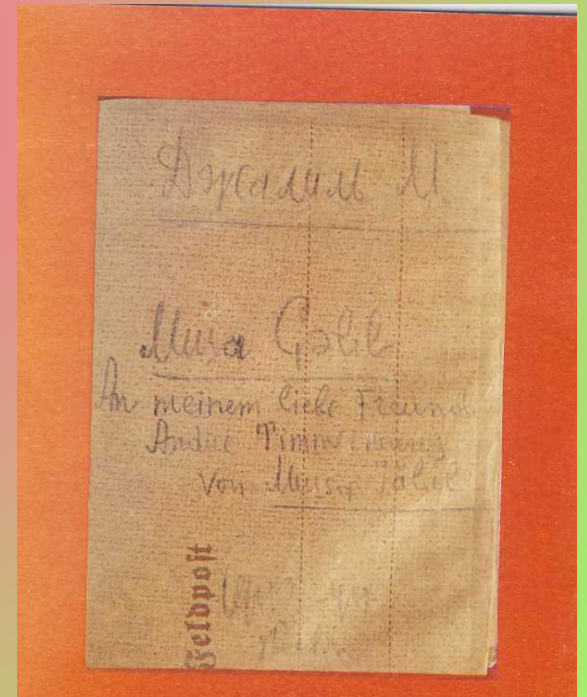 Джалиль М.
Musa Çəlil
An meinem liebe Freund
Andre Timmermans
von Musa Jalil
Feldpost